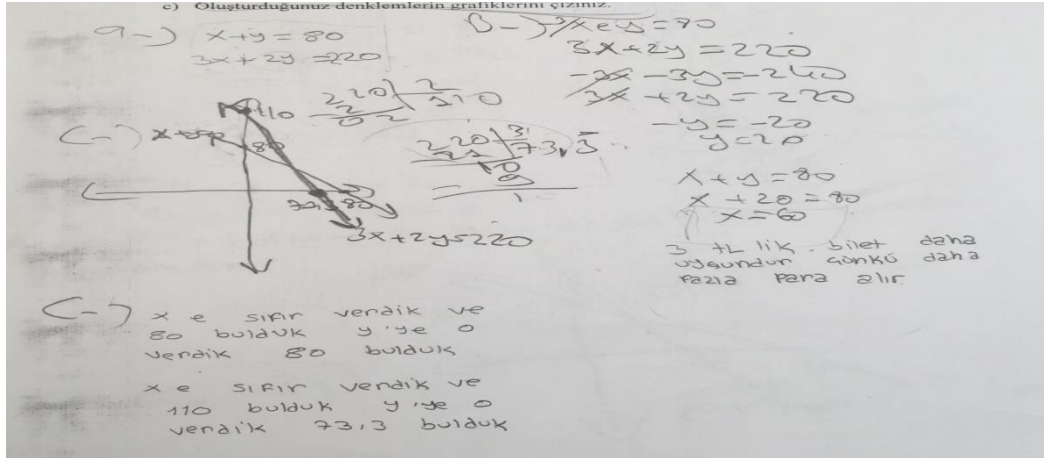 c) Oluşturduğunuz denklemlerin grafiklerini çiziniz.
a-) x+y=80
3x+2y=220
B-) -3/x+y=80
3x+2y=220
-3x-3y=-240
3x+2y=220
-y=-20
y=20
x+y=80
x+20=80
x=60
3 tL lik bilet daha
uygundur çünkü daha
fazla para alır.
C-)
110
80
73,3 80
3x+2y=220
220 2
2 110
02
220 3
21 73,3
10
9
1
C-) x e sıfır verdik ve
80 bulduk y'ye 0
verdik 80 bulduk
x e sıfır verdik ve
110 bulduk y'ye 0
verdik 73,3 bulduk